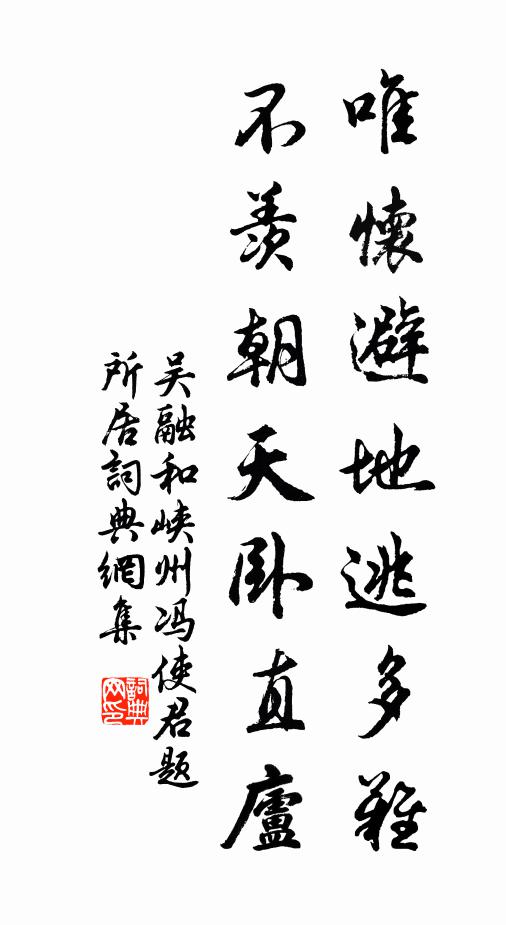 唯懷避地逃多難
不羨朝天臥直廬
吴融和峡州冯使君題
所居詞典網集
詞典网印